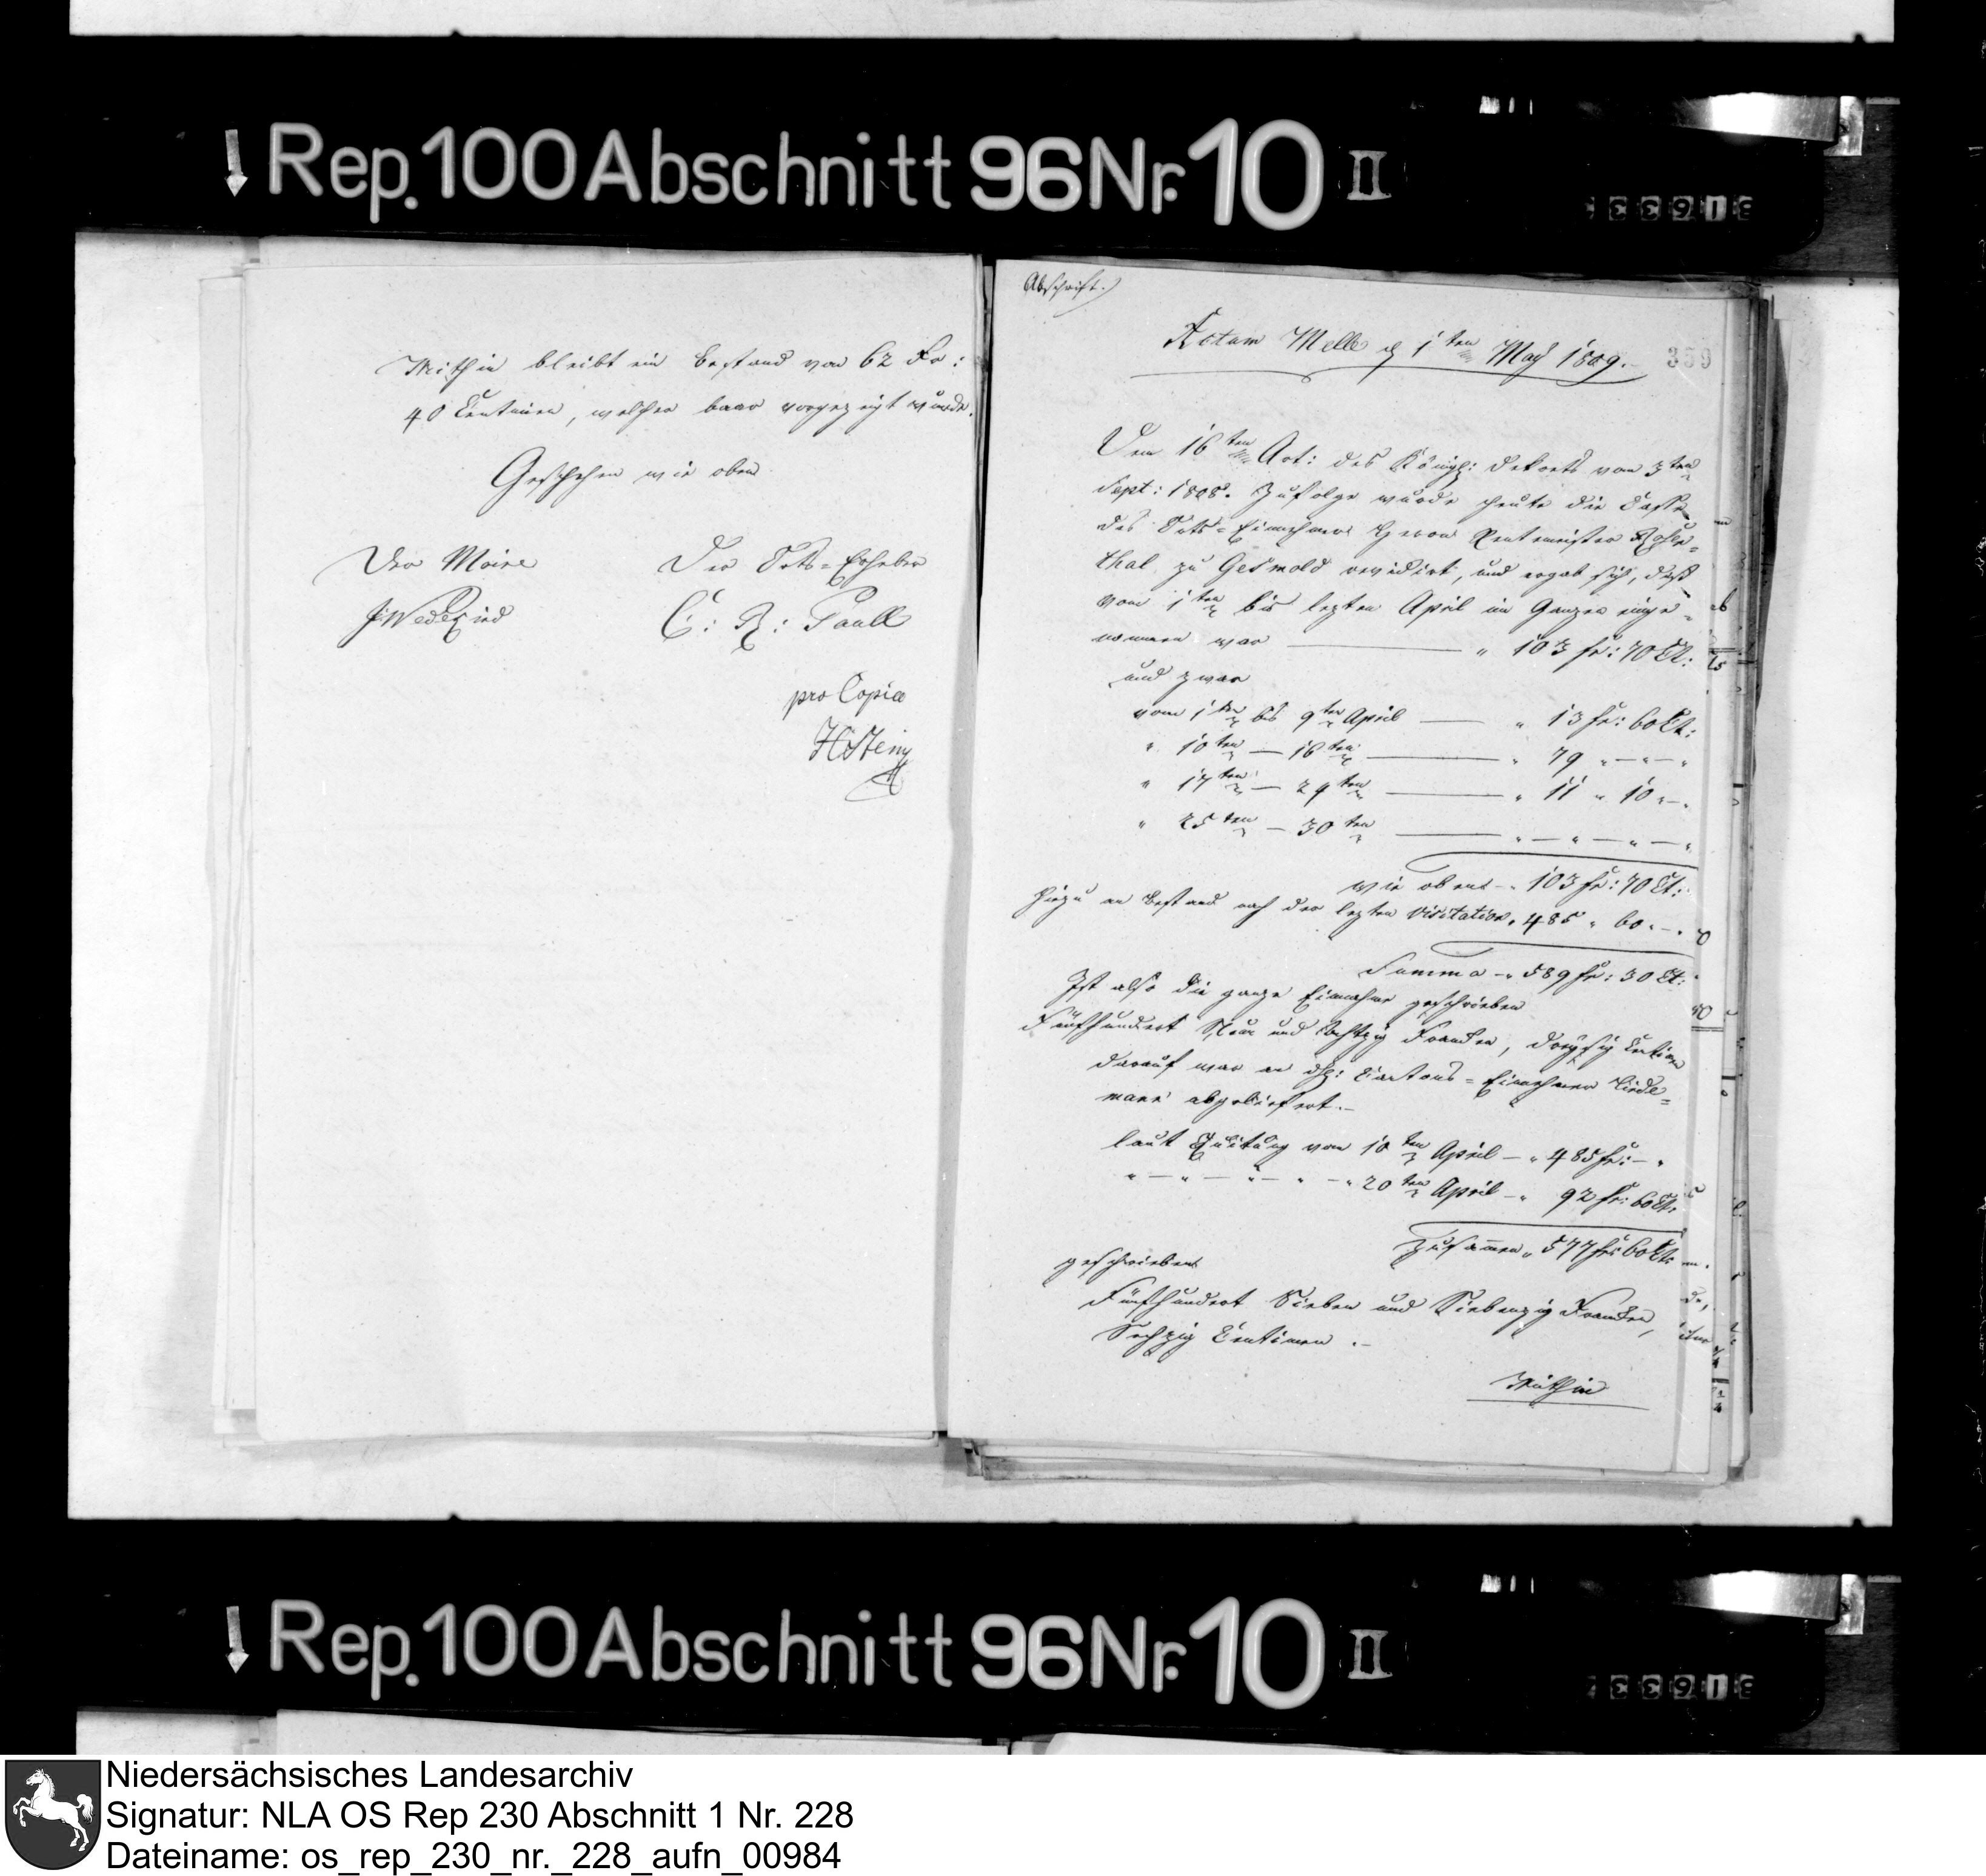 Rep. 100 Abschnitt 96 Nr. 10 II
Mithin bleibt ein Bestand von 62 Fr:
40 Centimen, welcher baar vorgezeigt wurde.
Geschehen wie oben
Der Maire
Der Orts-Erheber
C: R: Paull
pro Copia
Abschrift.
Actum Melle d 1ten May 1809.
359
Dem 16ten Art: des Königl: Dekrets vom 3ten
Sept: 1808. Zufolge wurde heute die Casse
des Orts-Einnehmers Herrn Rentmeister Rosen-
thal zu Gesmold revidirt, und ergab sich, daß
vom 1ten bis lezten April im Ganzen einge-
nommen war — " 103 fr: 70 Ct:
und zwar
vom 1ten bis 9ten April — " 13 fr: 60 Ct:
" 10ten — 16ten — " 79 " — " — "
" 17ten — 24ten — " 11 " 10 " — "
" 25ten — 30ten — " — " — " — "
wie oben — " 103 fr: 70 Ct:
hiezu an Bestand nach der lezten Visitation " 485 " 60 " — "
Summa — " 589 fr: 30 Ct:
Ist also die ganze Einnahme geschrieben
Fünfhundert Neun und Achtzig Franken, dreyßig Centimen
darauf war an den Cantons-Einnehmer Tiede-
mann abgeliefert.—
laut Quitung vom 10ten April — " 485 fr: — "
" — " — " — " — " 20ten April — " 92 fr: 60 Ct:
Zusammen " 577 fr: 60 Ct:
geschrieben
Fünfhundert Sieben und Siebenzig Franken,
Sechzig Centimen .—
Mithin
Rep. 100 Abschnitt 96 Nr. 10 II
Niedersächsisches Landesarchiv
Signatur: NLA OS Rep 230 Abschnitt 1 Nr. 228
Dateiname: os_rep_230_nr._228_aufn_00984